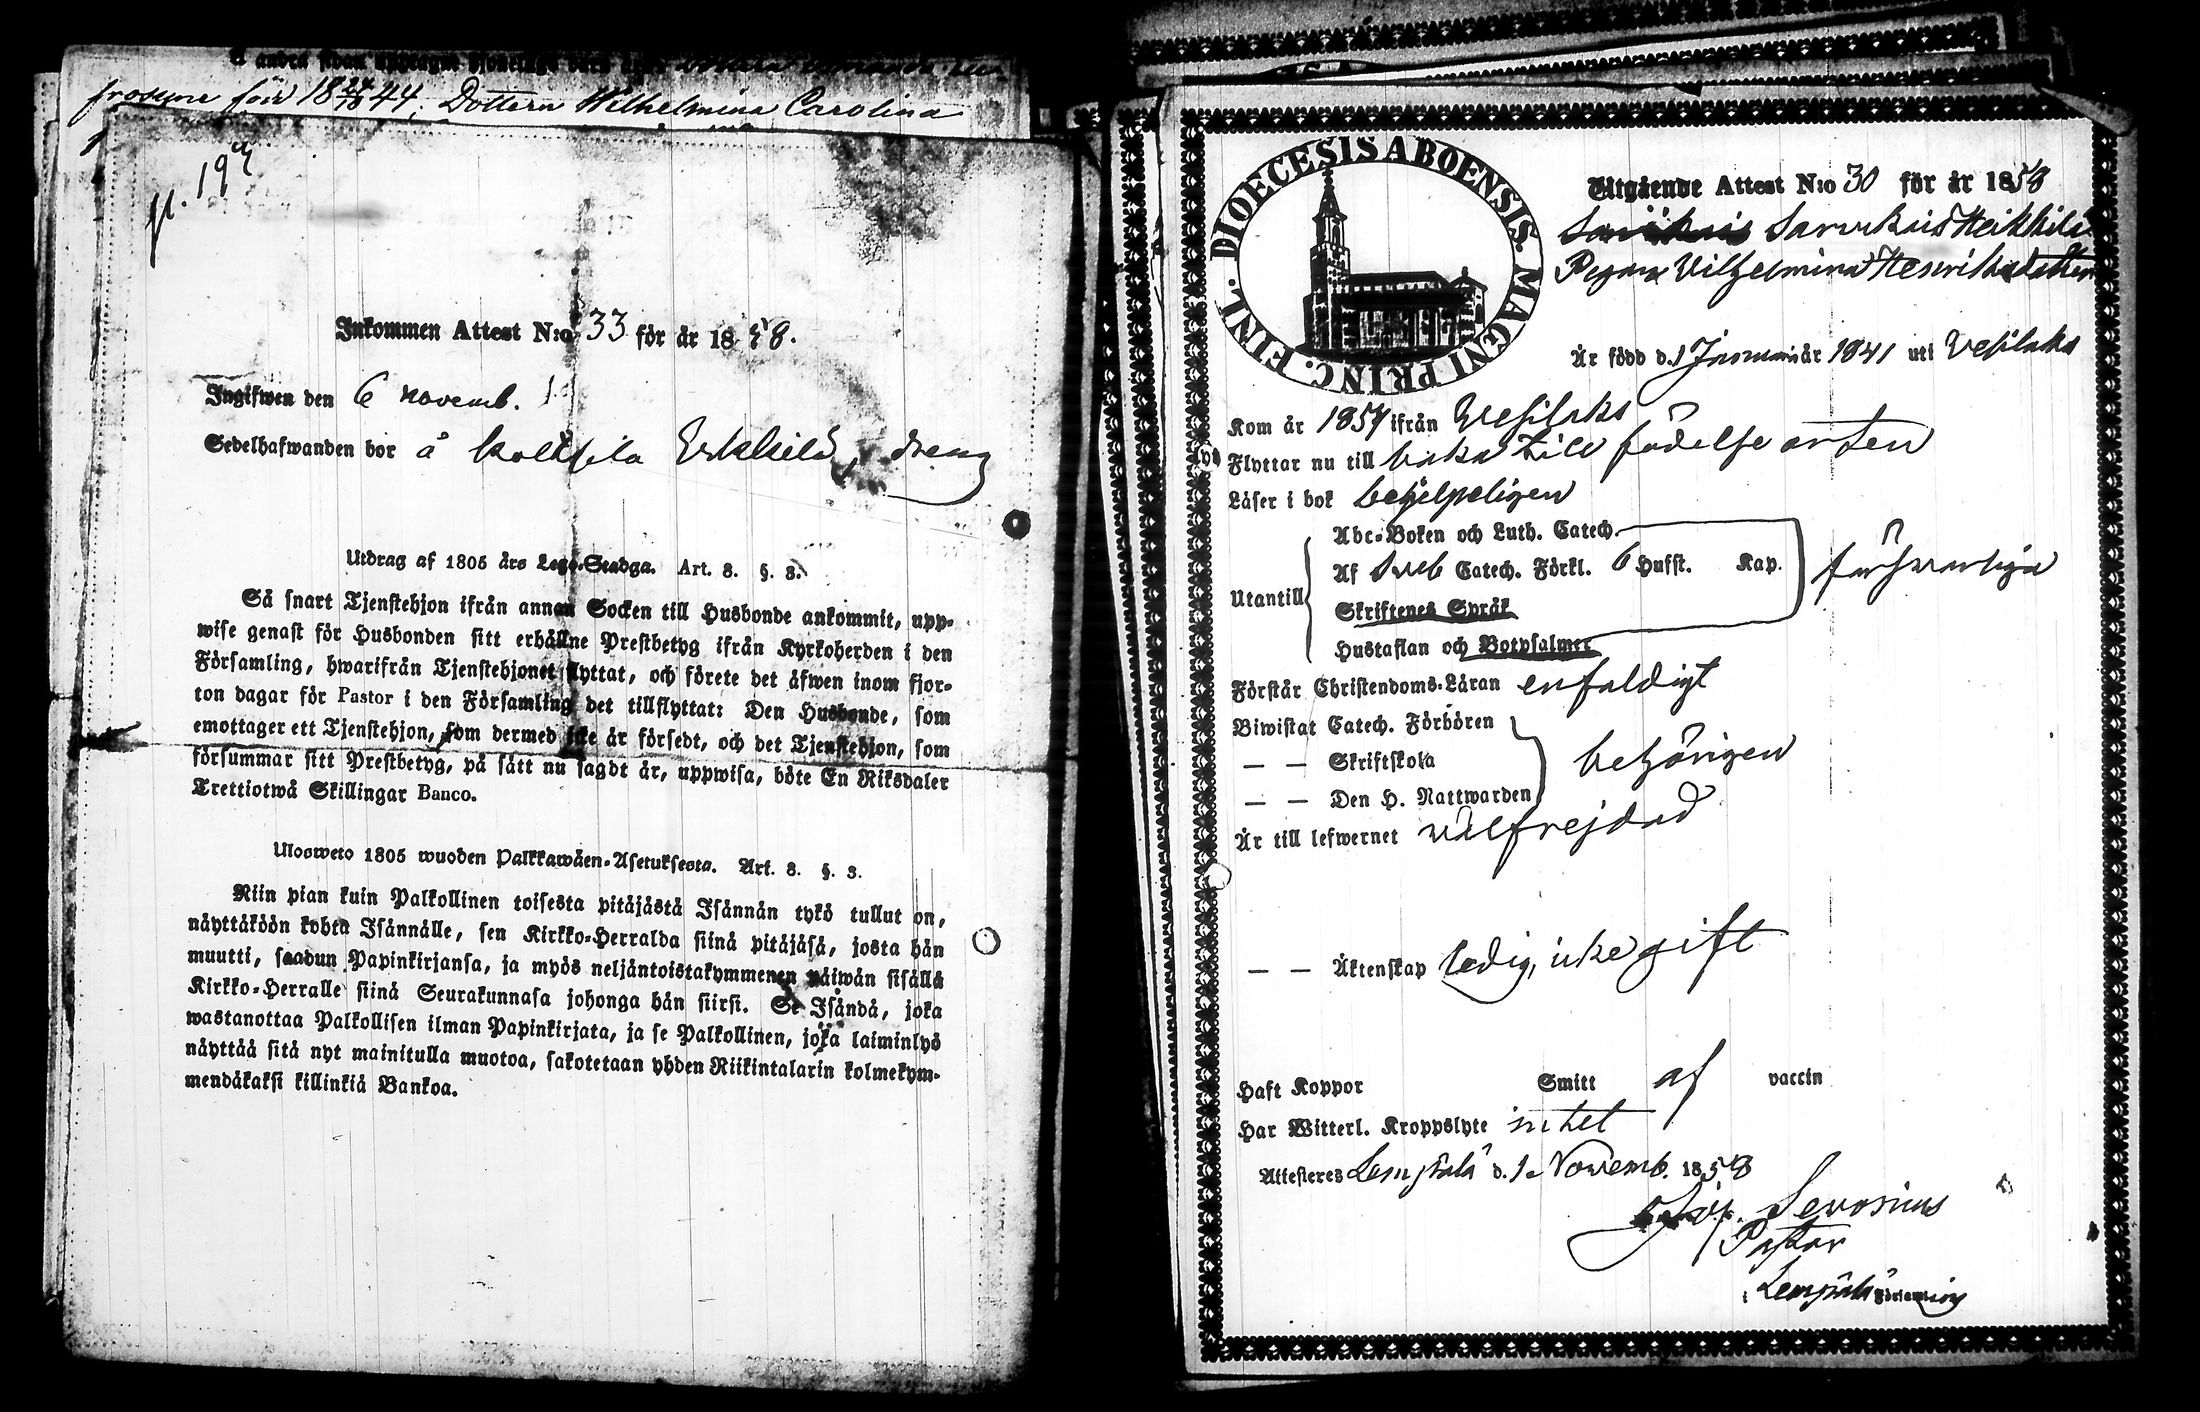 frossne för 18 24/10 44. Dottern Wilhelmina Carolina
Inkommen Attest N:o 33 för år 1858.
Ingifwen den 6 novemb.
Sedelhafwanden bor å
Utdrag af 1805 års Lego-Stadga. Art. 8. §. 3.
Så snart Tjenstehjon ifrån annan Socken till Husbonde ankommit, upp-
wise genast för Husbonden sitt erhållne Prestbetyg ifrån Kyrkoherden i den
Församling, hwarifrån Tjenstehjonet flyttat, och förete det äfwen inom fjor-
ton dagar för Pastor i den Församling det tillflyttat: Den Husbonde, som
emottager ett Tjenstehjon, som dermed icke är försedt, och det Tjenstehjon, som
försummar sitt Prestbetyg, på sätt nu sagdt är, uppwisa, böte En Riksdaler
Trettiotwå Skillingar Banco.
Ulosweto 1805 wuoden Palkkawäen-Asetuksesta. Art. 8. §. 3.
Niin pian kuin Palkollinen toisesta pitäjästä Isännän tykö tullut on,
näyttäköön kohta Isännälle, sen Kirkko-Herralda siinä pitäjäsä, josta hän
muutti, saadun Papinkirjansa, ja myös neljäntoistakymmenen päiwän sisällä
Kirkko-Herralle siinä Seurakunnasa johonga hän siirsi. Se Isändä, joka
wastanottaa Palkollisen ilman Papinkirjata, ja se Palkollinen, joka laiminlyö
näyttää sitä nyt mainitulla muotoa, sakotetaan yhden Riikintalarin kolmekym-
mendäkaksi killinkiä Bankoa.
FINL. DIOECESIS ABOENSIS. MAGNI PRINC.
Utgående Attest N:o 30 för år 1858
Heikkilä
Pigan Vilhelmina Henriksdotter
Är född d. 1 Januari år 1841 uti Vesilaks
Kom år 1857 ifrån Vesilaks
Flyttar nu till baka till födelse orten
Läser i bok behjelpeligen
Abc-Boken och Luth. Catech.
Utantill Af Sveb Catech. Förkl. 6 Hufst. Kap. försvarliga
Skriftenes Språk
Hustaflan och Botpsalmer
Förstår Christendoms-Läran enfaldigt
Biwistat Catech. Förhören
— — Skriftskola behörigen
— — Den H. Nattwarden
Är till lefwernet välfrejdad
— — Äktenskap ledig, icke gift
Haft Koppor Smitt af vaccin
Har Witterl. Kroppslyte intet
Attesteres Lempälä d. 1 Novemb. 1858
Servonius
Pastor
i Lempälä Församling